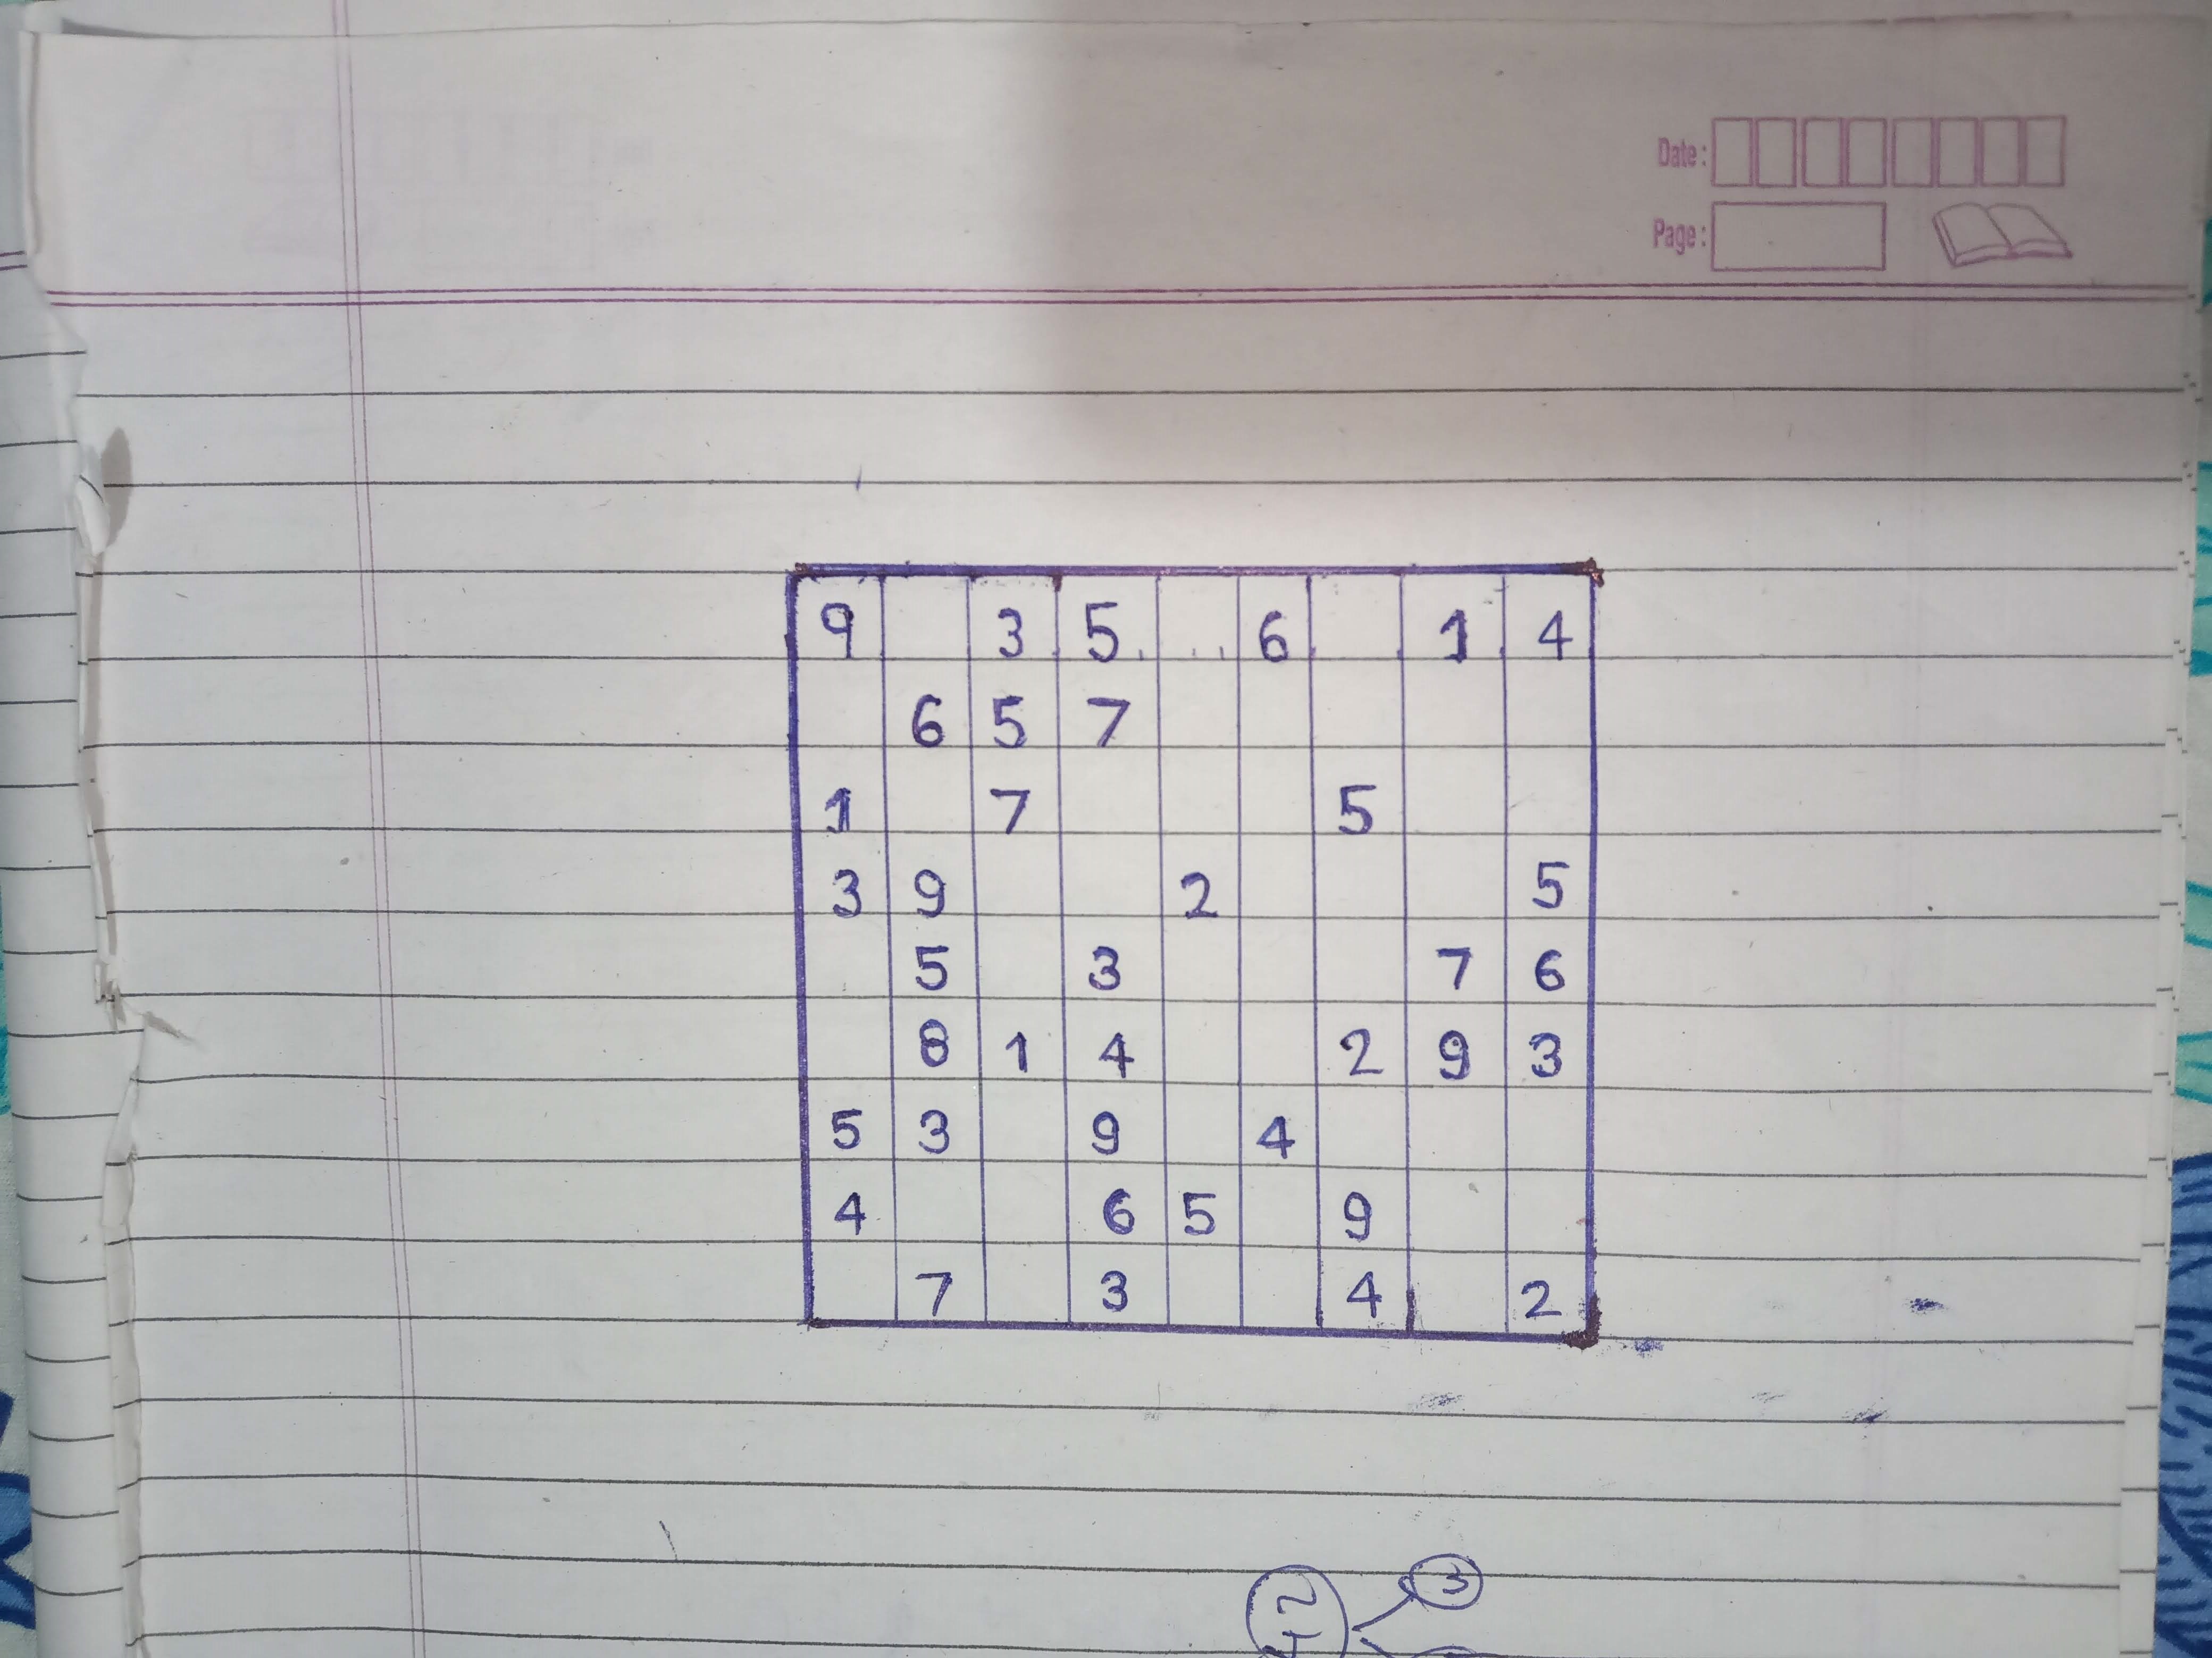 Date:
Page:
9 3 5 6 1 4
6 5 7
1 7 5
3 9 2 5
5 3 7 6
8 1 4 2 9 3
5 3 9 4
4 6 5 9
7 3 4 2
3